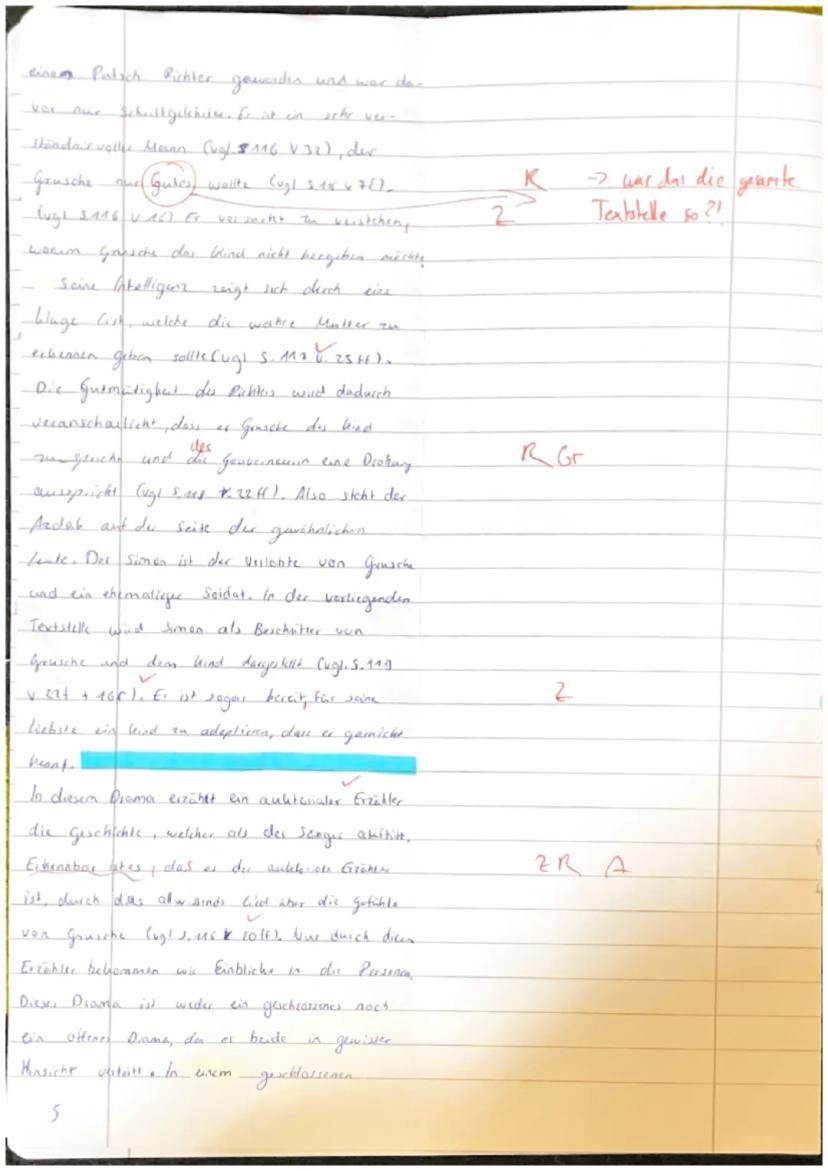 einem Putsch Richter geworden und war da-
vor nur Schriftgelehrter. Er ist ein sehr ver-
ständnisvoller Mann (vgl. S 116 V 32), der
Grusche nur Gutes wollte (vgl S.
R -> war das die gesamte
Textstelle so?!
Z
(vgl S.116 V 16) Er versucht zu verstehen,
warum Grusche das Kind nicht hergeben möchte
Seine Intelligenz zeigt sich durch eine
kluge List, welche die wahre Mutter zu
erkennen geben sollte (vgl S. 117 V. 25 ff).
Die Gutmütigkeit des Richters wird dadurch
veranschaulicht, dass er Grusche das Kind
des
und die Gouverneurin eine Drohung
R Gr
ausspricht (vgl S. 22 ff). Also steht der
Azdak auf der Seite der gewöhnlichen
Leute. Der Simon ist der Verlobte von Grusche
und ein ehemaliger Soldat. In der vorliegenden
Textstelle wird Simon als Beschützer von
Grusche und dem Kind dargestellt (vgl. S. 119
V 22f + 16f). Er ist sogar bereit, für seine
Z
liebste ein Kind zu adoptieren, dass er garnicht
kennt.
In diesem Drama erzählt ein auktorialer Erzähler
die Geschichte, welcher als der Sänger auftritt.
Erkennbar ist es, das es der auktoriale Erzähler
ZR A
ist, durch das allwissende Lied über die Gefühle
von Grusche (vgl S. 116 V 20 ff). Nur durch diesen
Erzähler bekommen wir Einblicke in die Personen.
Dieses Drama ist weder ein geschlossenes noch
ein offenes Drama, da es beide in gewisser
Hinsicht vertritt. In einem geschlossenen
5